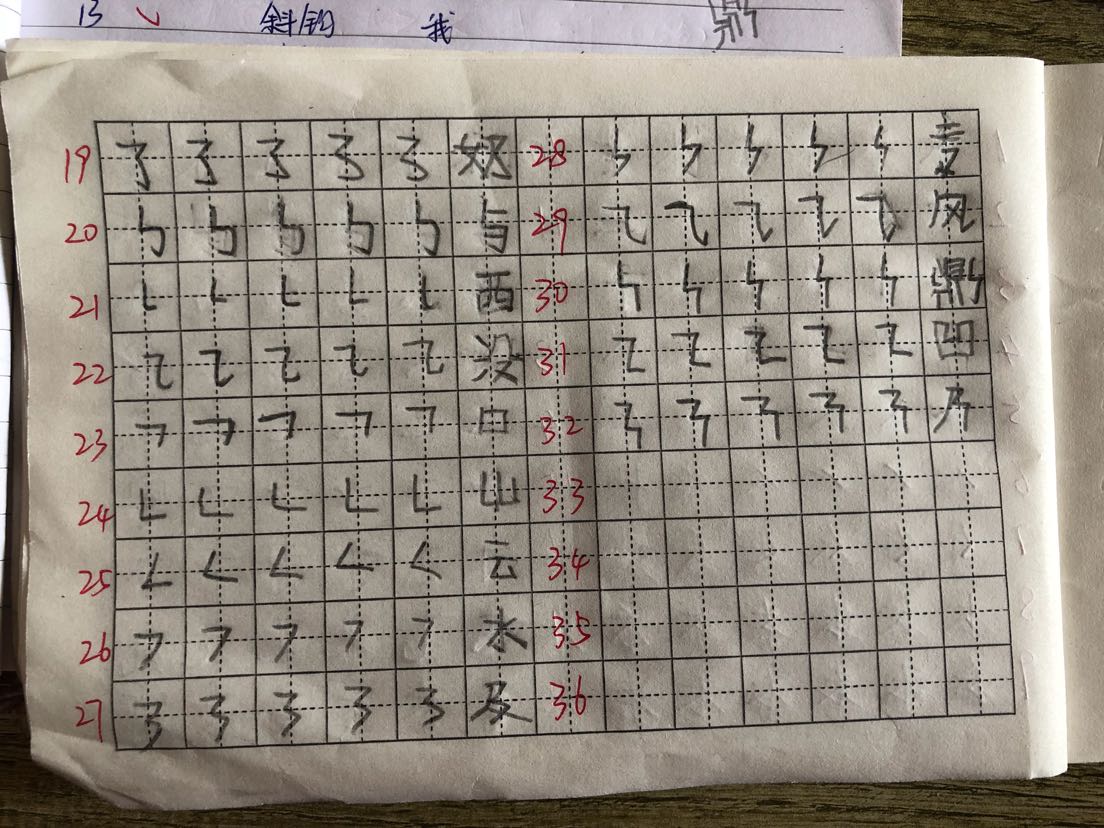 13 ㇂ 斜钩 我 鼎
19 ㇋ ㇋ ㇋ ㇋ ㇋ 好 28 ㇞ ㇞ ㇞ ㇞ ㇞
20 ㇉ ㇉ ㇉ ㇉ ㇉ 与 29 ⺄ ⺄ ⺄ ⺄ ⺄ 风
21 ㇄ ㇄ ㇄ ㇄ ㇄ 西 30 ㇞ ㇞ ㇞ ㇞ ㇞ 鼎
22 ㇍ ㇍ ㇍ ㇍ ㇍ 没 31 ㇅ ㇅ ㇅ ㇅ ㇅ 凹
23 ㇕ ㇕ ㇕ ㇕ ㇕ 口 32 ㇡ ㇡ ㇡ ㇡ ㇡ 乃
24 ㇗ ㇗ ㇗ ㇗ ㇗ 山 33
25 ㇜ ㇜ ㇜ ㇜ ㇜ 云 34
26 ㇇ ㇇ ㇇ ㇇ ㇇ 水 35
27 ㇋ ㇋ ㇋ ㇋ ㇋ 及 36